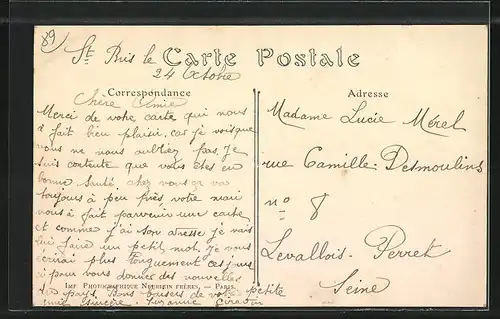 89
St Bris le
Carte Postale
24 Octobre
Correspondance
Chère Amie
Merci de votre carte qui nous
a fait bien plaisir, car je vois que
vous ne nous oubliez pas, je
suis contente que vous êtes en
bonne santé, chez nous ça va
toujours à peu près, votre mari
nous a fait parvenir une carte
et comme j'ai son adresse je vais
lui faire un petit mot, je vous
écrirai plus longuement ces jours
ci pour vous donner des nouvelles
du pays. Bons baisers de votre petite
amie sincère. Suzanne
Imp Photographique Neurdein Frères. — Paris.
Adresse
Madame Lucie Mérel
rue Camille Desmoulins
n° 8
Levallois-Perret
Seine